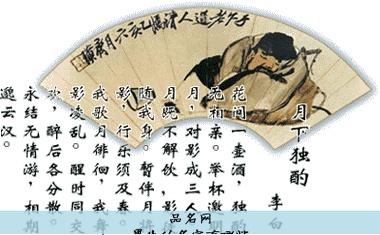 月下独酌
李白
花间一壶酒,独酌
无相亲。举杯邀明
月,对影成三人。
月既不解饮,影徒
随我身。暂伴月将
影,行乐须及春。
我歌月徘徊,我舞
影凌乱。醒时同交
欢,醉后各分散。
永结无情游,相期
邈云汉。
品名网